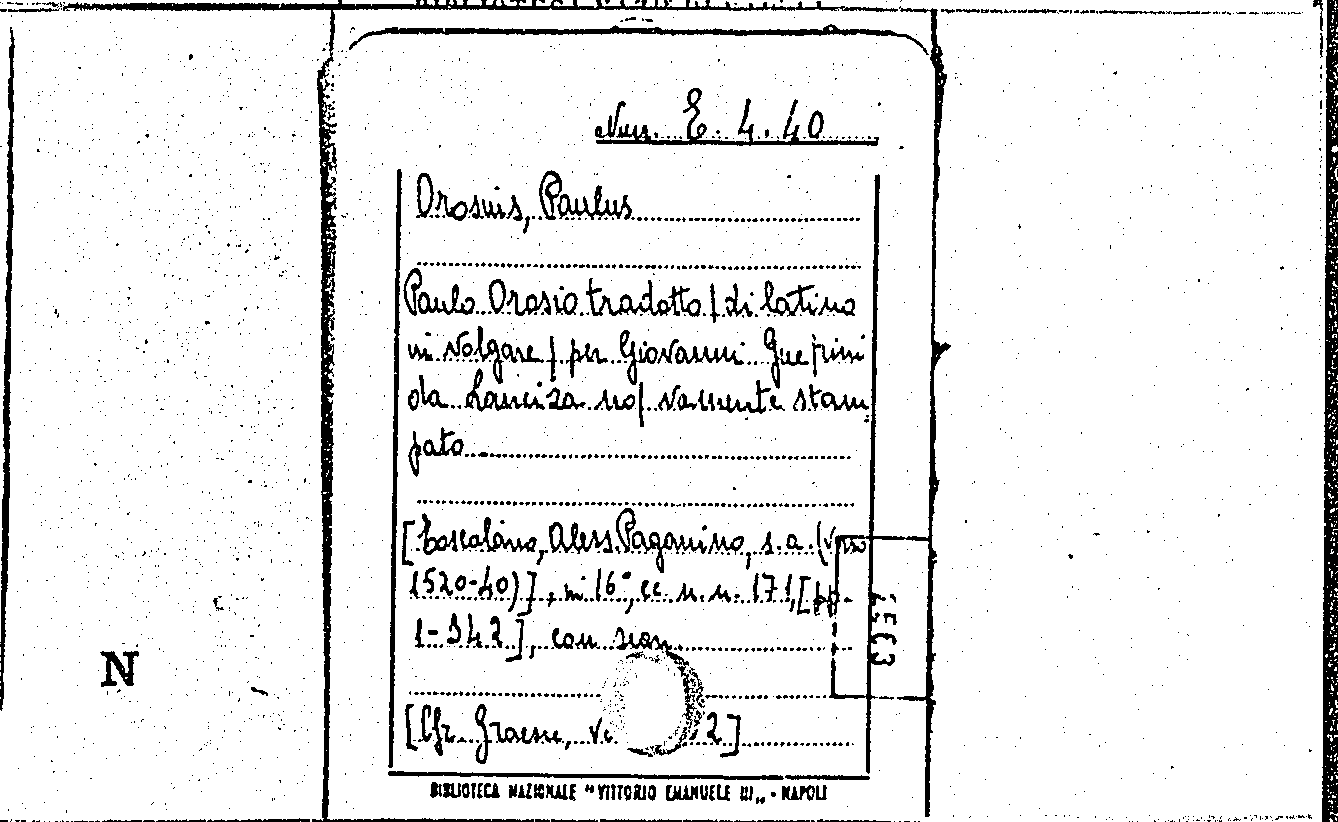 Nun. E. 4. 40
Orosius, Paulus
Paulo Orosio tradotto | di latino
in volgare | per Giovanni Guerini
da Lanciza no| vamente stam
pato
[Toscolano, Aless. Paganino, s.a. (verso
1520-40)], in 16°, cc. n. n. 171, [pp.
1-342], con
[Cfr. Graesse, 2]
N
BIBLIOTECA NAZIONALE "VITTORIO EMANUELE III„ - NAPOLI